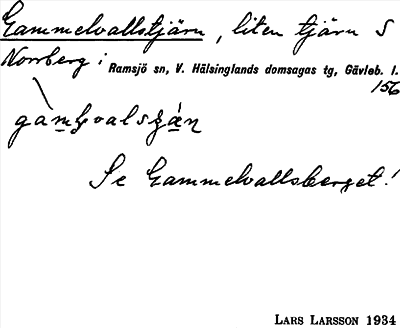 Gammelvallstjärn, liten tjärn S
Norrberg i Ramsjö sn, V. Hälsinglands domsagas tg, Gävleb. l.
156
Se Gammelvallsberget!
LARS LARSSON 1934